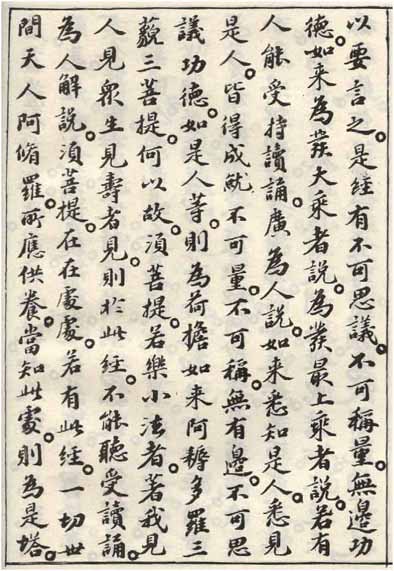 以要言之。是經有不可思議。不可稱量。無邊功
德。如来為發大乘者說。為發最上乘者說。若有
人能受持讀誦。廣為人說。如来悉知是人。悉見
是人。皆得成就不可量。不可稱。無有邊。不可思
議功德。如是人等。則為荷擔如来阿耨多羅三
藐三菩提。何以故。須菩提。若樂小法者。著我見
人見眾生見壽者見。則於此經。不能聽受讀誦。
為人解說。須菩提。在在處處。若有此經。一切世
間天人阿脩羅。所應供養。當知此處。則為是塔。